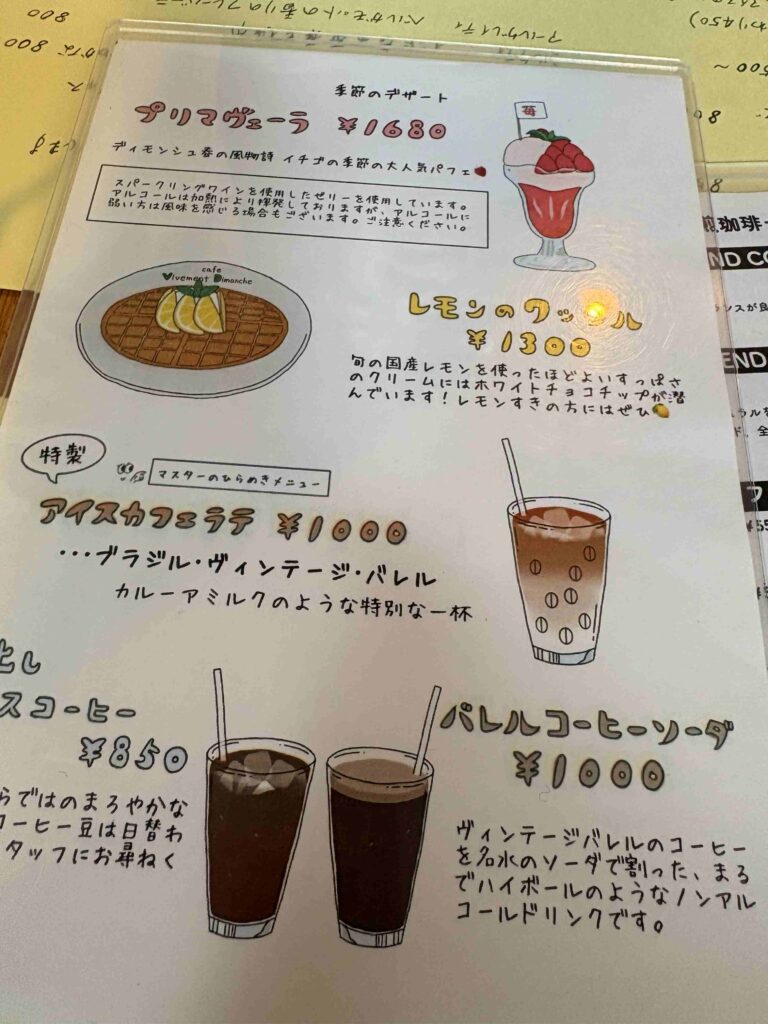 季節のデザート
プリマヴェーラ ¥1680
苺
ディモンシュ春の風物詩 イチゴの季節の大人気パフェ🍓
スパークリングワインを使用したゼリーを使用しています。
アルコールは加熱により揮発しておりますが、アルコールに
弱い方は風味を感じる場合もございます。ご注意ください。
cafe
Vivement Dimanche
レモンのワッフル
¥1300
旬の国産レモンを使ったほどよいすっぱさ
のクリームにはホワイトチョコチップが潜
んでいます！レモンすきの方にはぜひ🍋
特製
マスターのひらめきメニュー
アイスカフェラテ ¥1000
・・・ブラジル・ヴィンテージ・バレル
カルーアミルクのような特別な一杯
とし
スコーヒー
¥850
らではのまろやかな
コーヒー豆は日替わ
タッフにお尋ねく
バレルコーヒーソーダ
¥1000
ヴィンテージバレルのコーヒー
を名水のソーダで割った、まる
でハイボールのようなノンアル
コールドリンクです。
800
ベルガモットの香りのフレーバーテ
アールグレイティ
わり450)
500〜
800
煎珈琲
ND CO
ランスが良
END